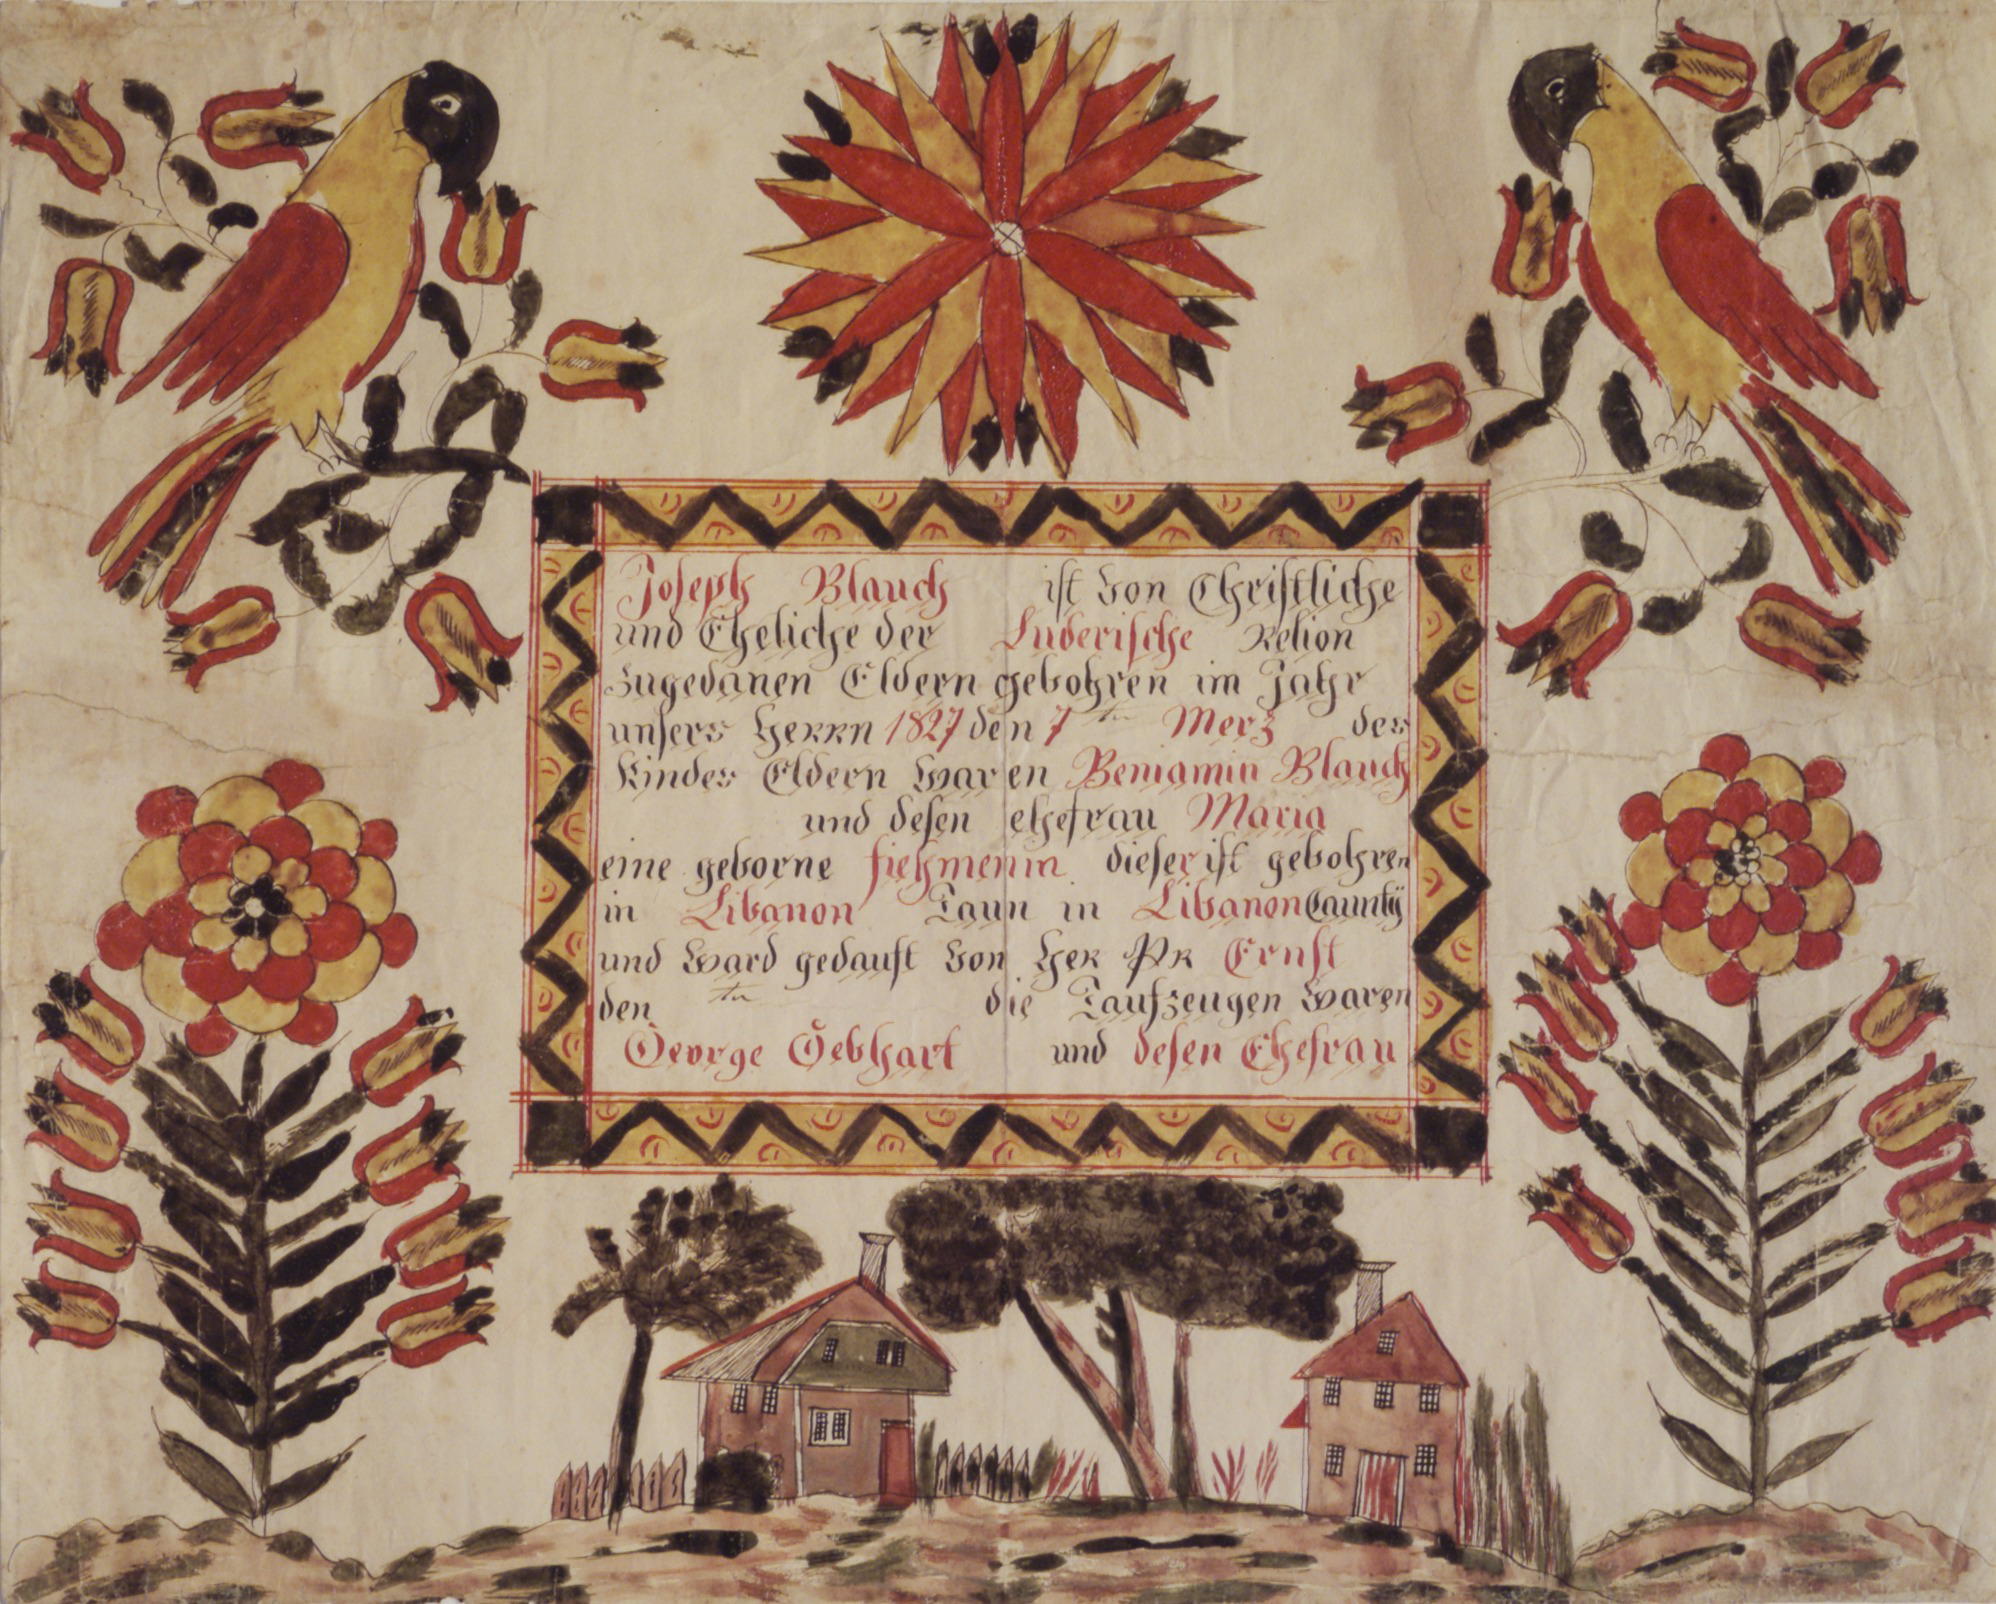 Joseph Blauch ist von Christliche
und Eheliche der Luderische Relion
zugedanen Eldern gebohren im Jahr
unsers HERRN 1827 den 7ten Merz des
Kindes Eldern waren Beniamin Blauch
und desen ehefrau Maria
eine geborne fiehmenin dieser ist gebohren
in Libanon Taun in Libanon Caunty
und ward gedauft von HER PR Ernst
den ten die Taufzeugen waren
George Gebhart und desen Ehefrau